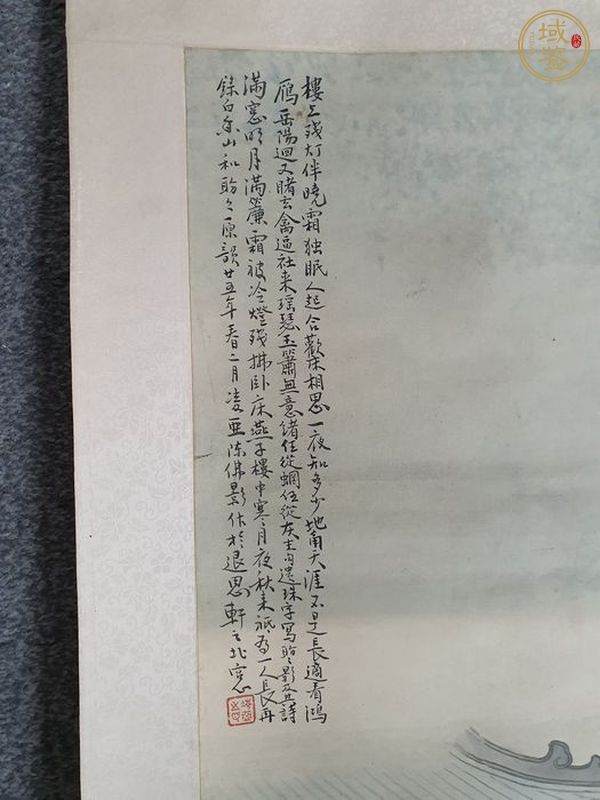 樓上残灯伴曉霜独眠人起合歡床相思一夜知多少地角天涯不是長適看鴻
雁岳陽迴又睹玄禽逼社来瑶瑟玉簫無意緒任從蝄任從灰末句遺珠字寫盼々影及其詩
滿窓明月滿簾霜被冷燈残拂卧床燕子樓中寒月夜秋来祇為一人長再
錄白香山和盼々原韻廿五年春二月凌亞陳佛影作於退思軒之北窓
域鉴